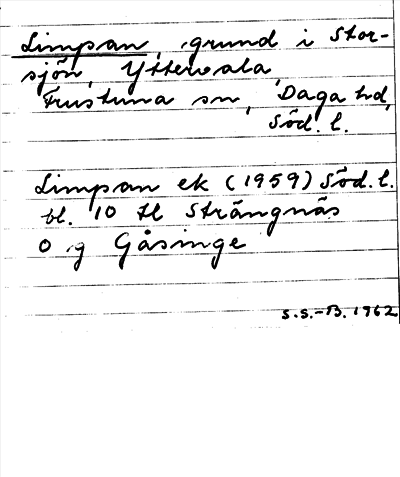 Limpan, grund i Stor-
sjön, Yttervala,
Frustuna sn, Daga hd,
Söd. l.
Limpan ek (1959) Söd. l.
bl. 10 H Strängnäs
O g Gåsinge
S.S.-B. 1962